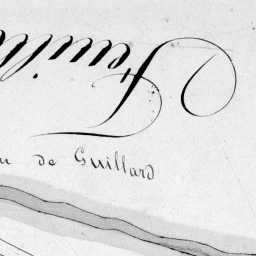 Feuill
de Guillard